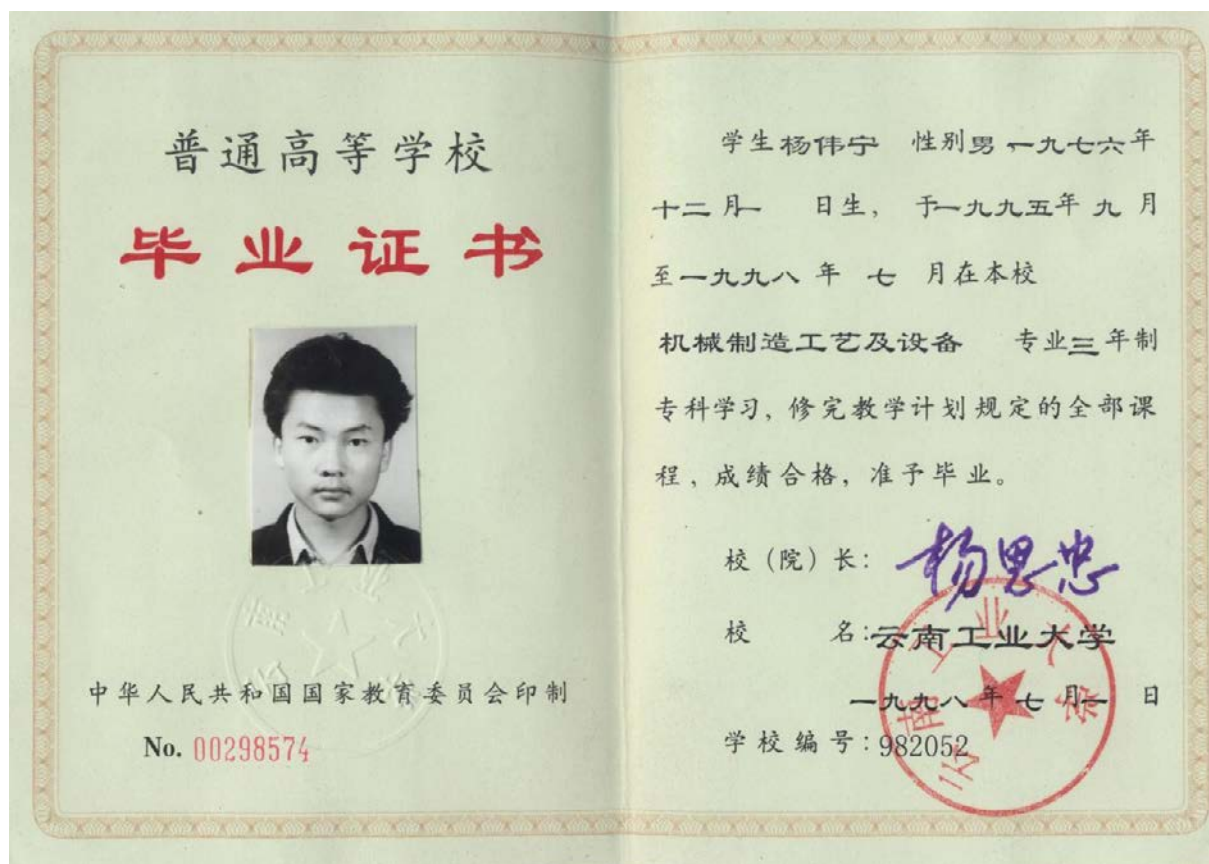 普通高等学校
毕业证书
中华人民共和国国家教育委员会印制
No. 00298574
学生杨伟宁 性别男 一九七六年
十二月一 日生，于一九九五年 九 月
至一九九八 年 七 月在本校
机械制造工艺及设备 专业三年制
专科学习，修完教学计划规定的全部课
程，成绩合格，准予毕业。
校（院）长：杨思忠
校 名：云南工业大学
一九九八年七月一 日
学校编号：982052
云南工业大学
云南工业大学